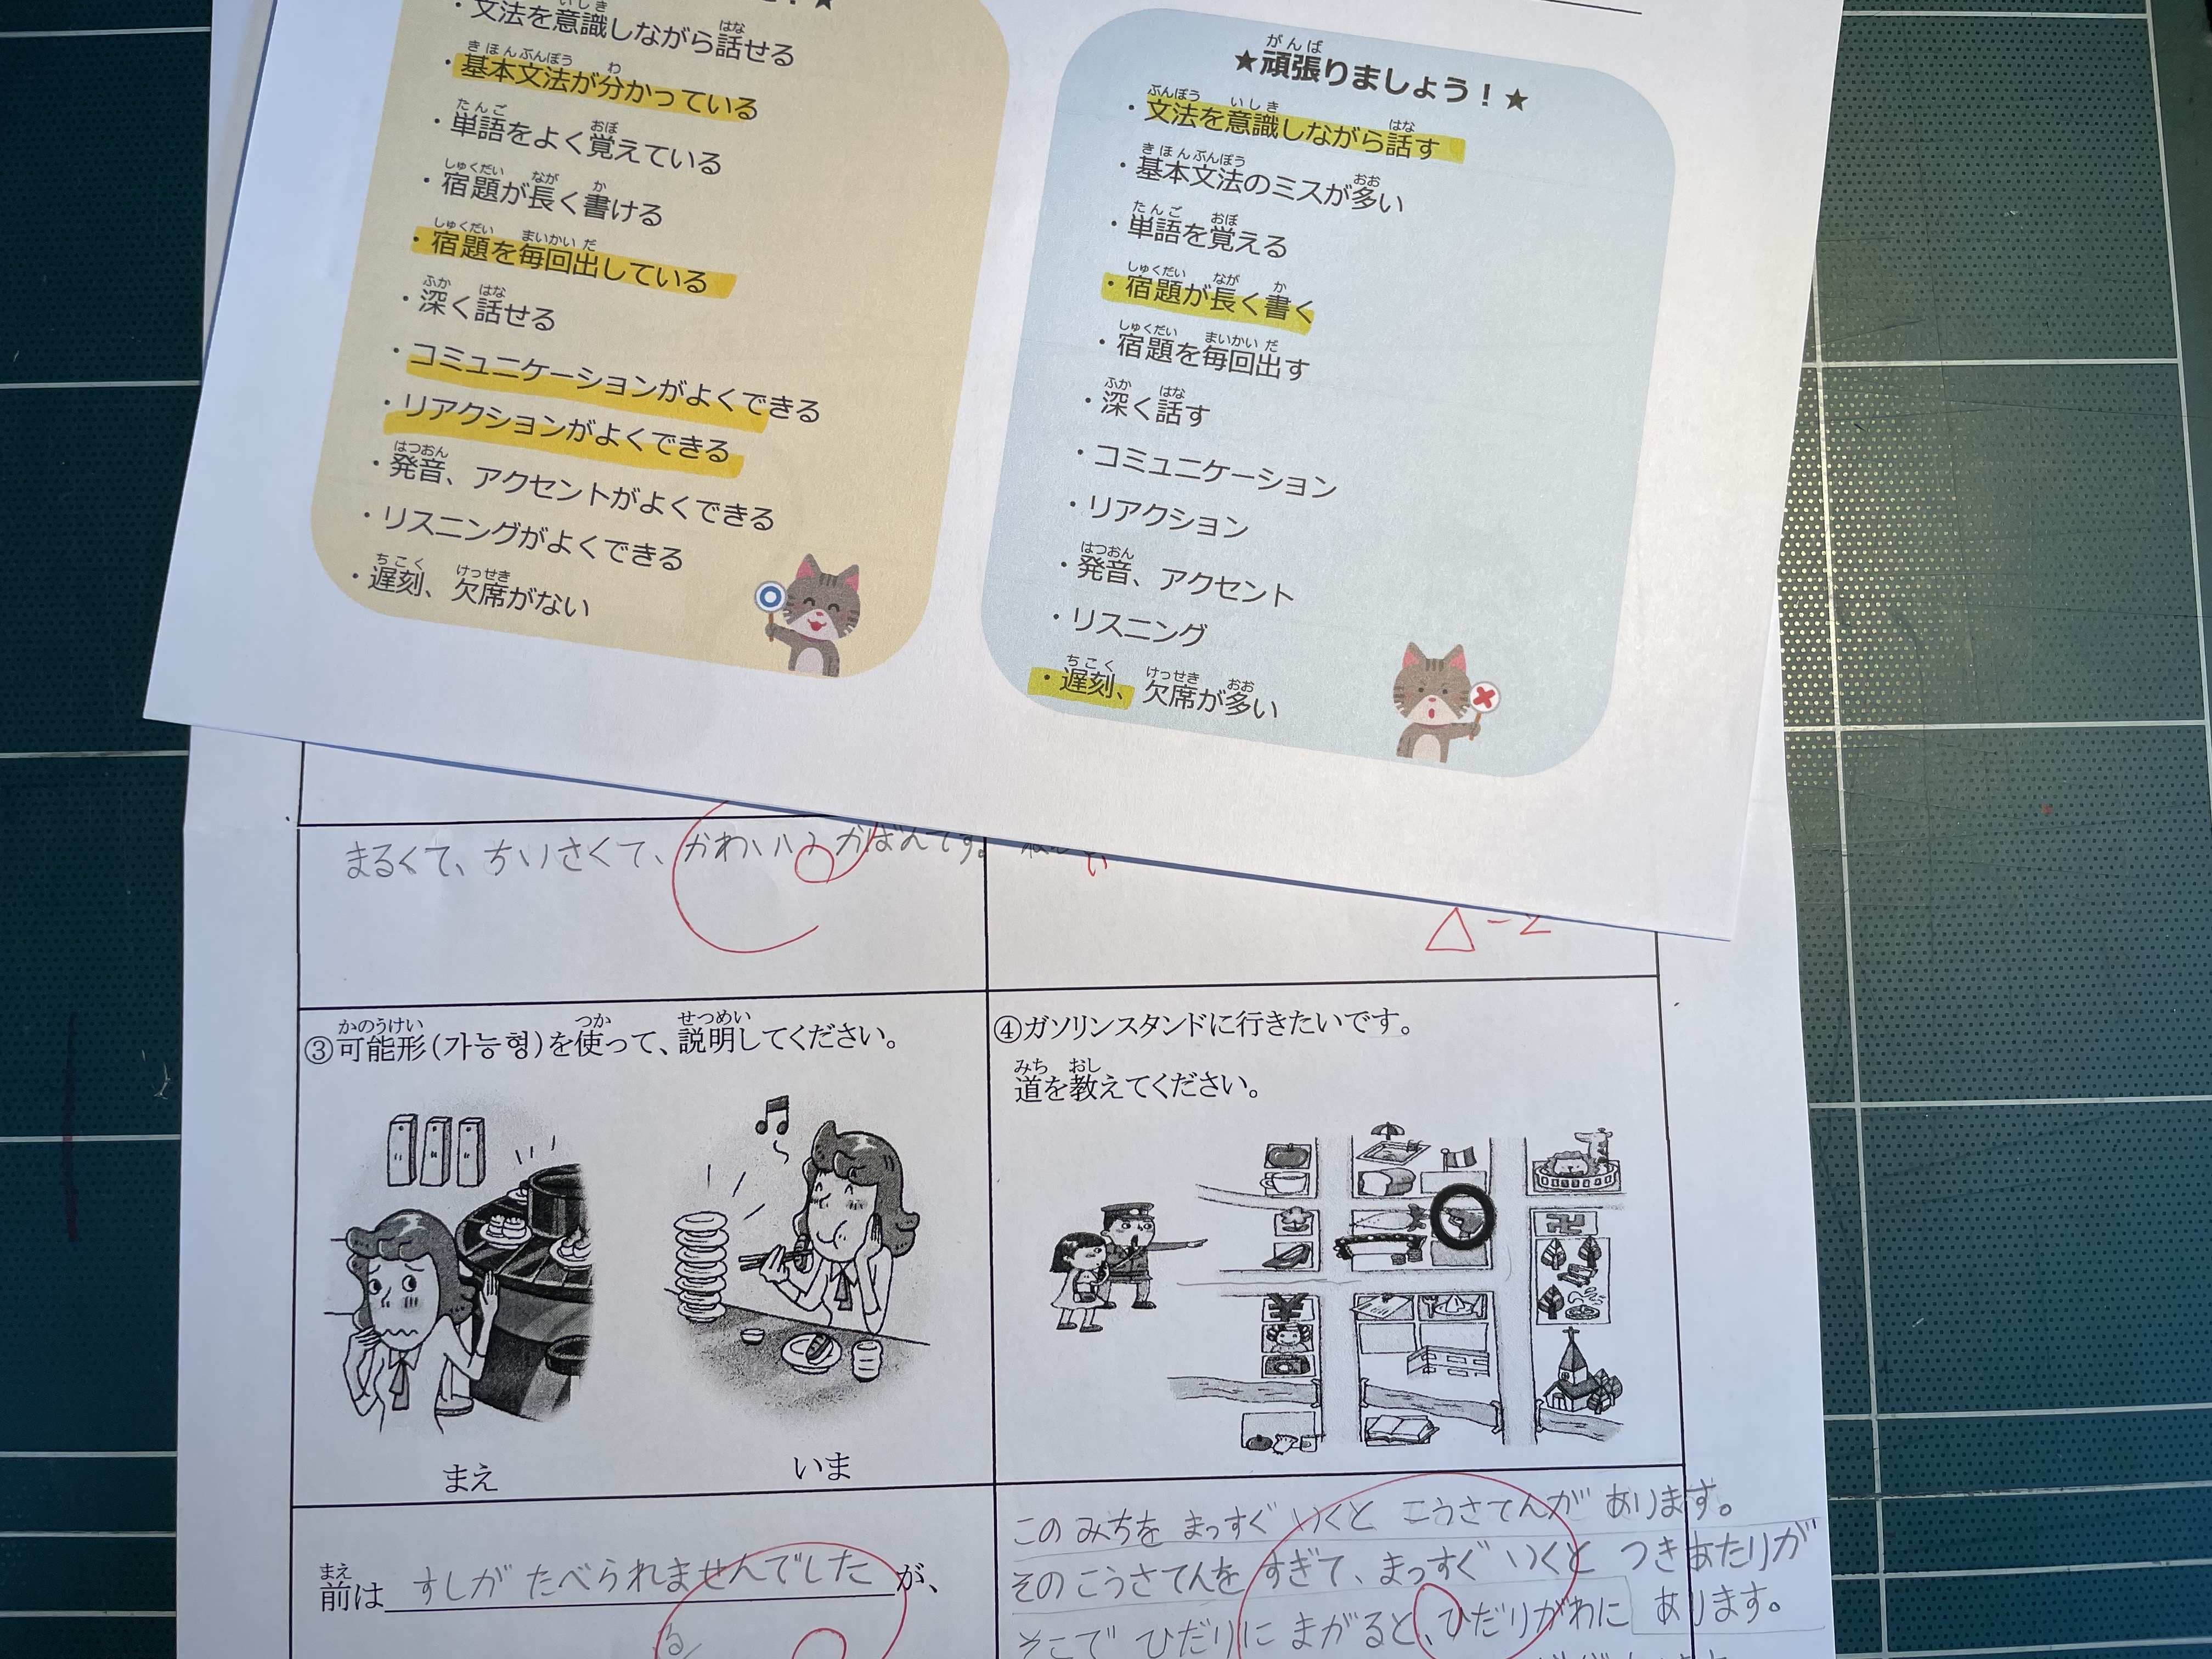 ・文法を意識しながら話せる
・基本文法が分かっている
・単語をよく覚えている
・宿題が長く書ける
・宿題を毎回出している
・深く話せる
・コミュニケーションがよくできる
・リアクションがよくできる
・発音、アクセントがよくできる
・リスニングがよくできる
・遅刻、欠席がない
★頑張りましょう！★
・文法を意識しながら話す
・基本文法のミスが多い
・単語を覚える
・宿題が長く書く
・宿題を毎回出す
・深く話す
・コミュニケーション
・リアクション
・発音、アクセント
・リスニング
・遅刻、欠席が多い
まるくて、ちいさくて、かわいい かばんです。
△-2
③可能形(가능형)を使って、説明してください。
まえ
いま
前は すしが たべられませんでした が、
④ガソリンスタンドに行きたいです。
道を教えてください。
この みちを まっすぐ いくと こうさてんが あります。
その こうさてんを すぎて、まっすぐ いくと つきあたりが
あります。
そこで ひだりに まがると、ひだりがわに